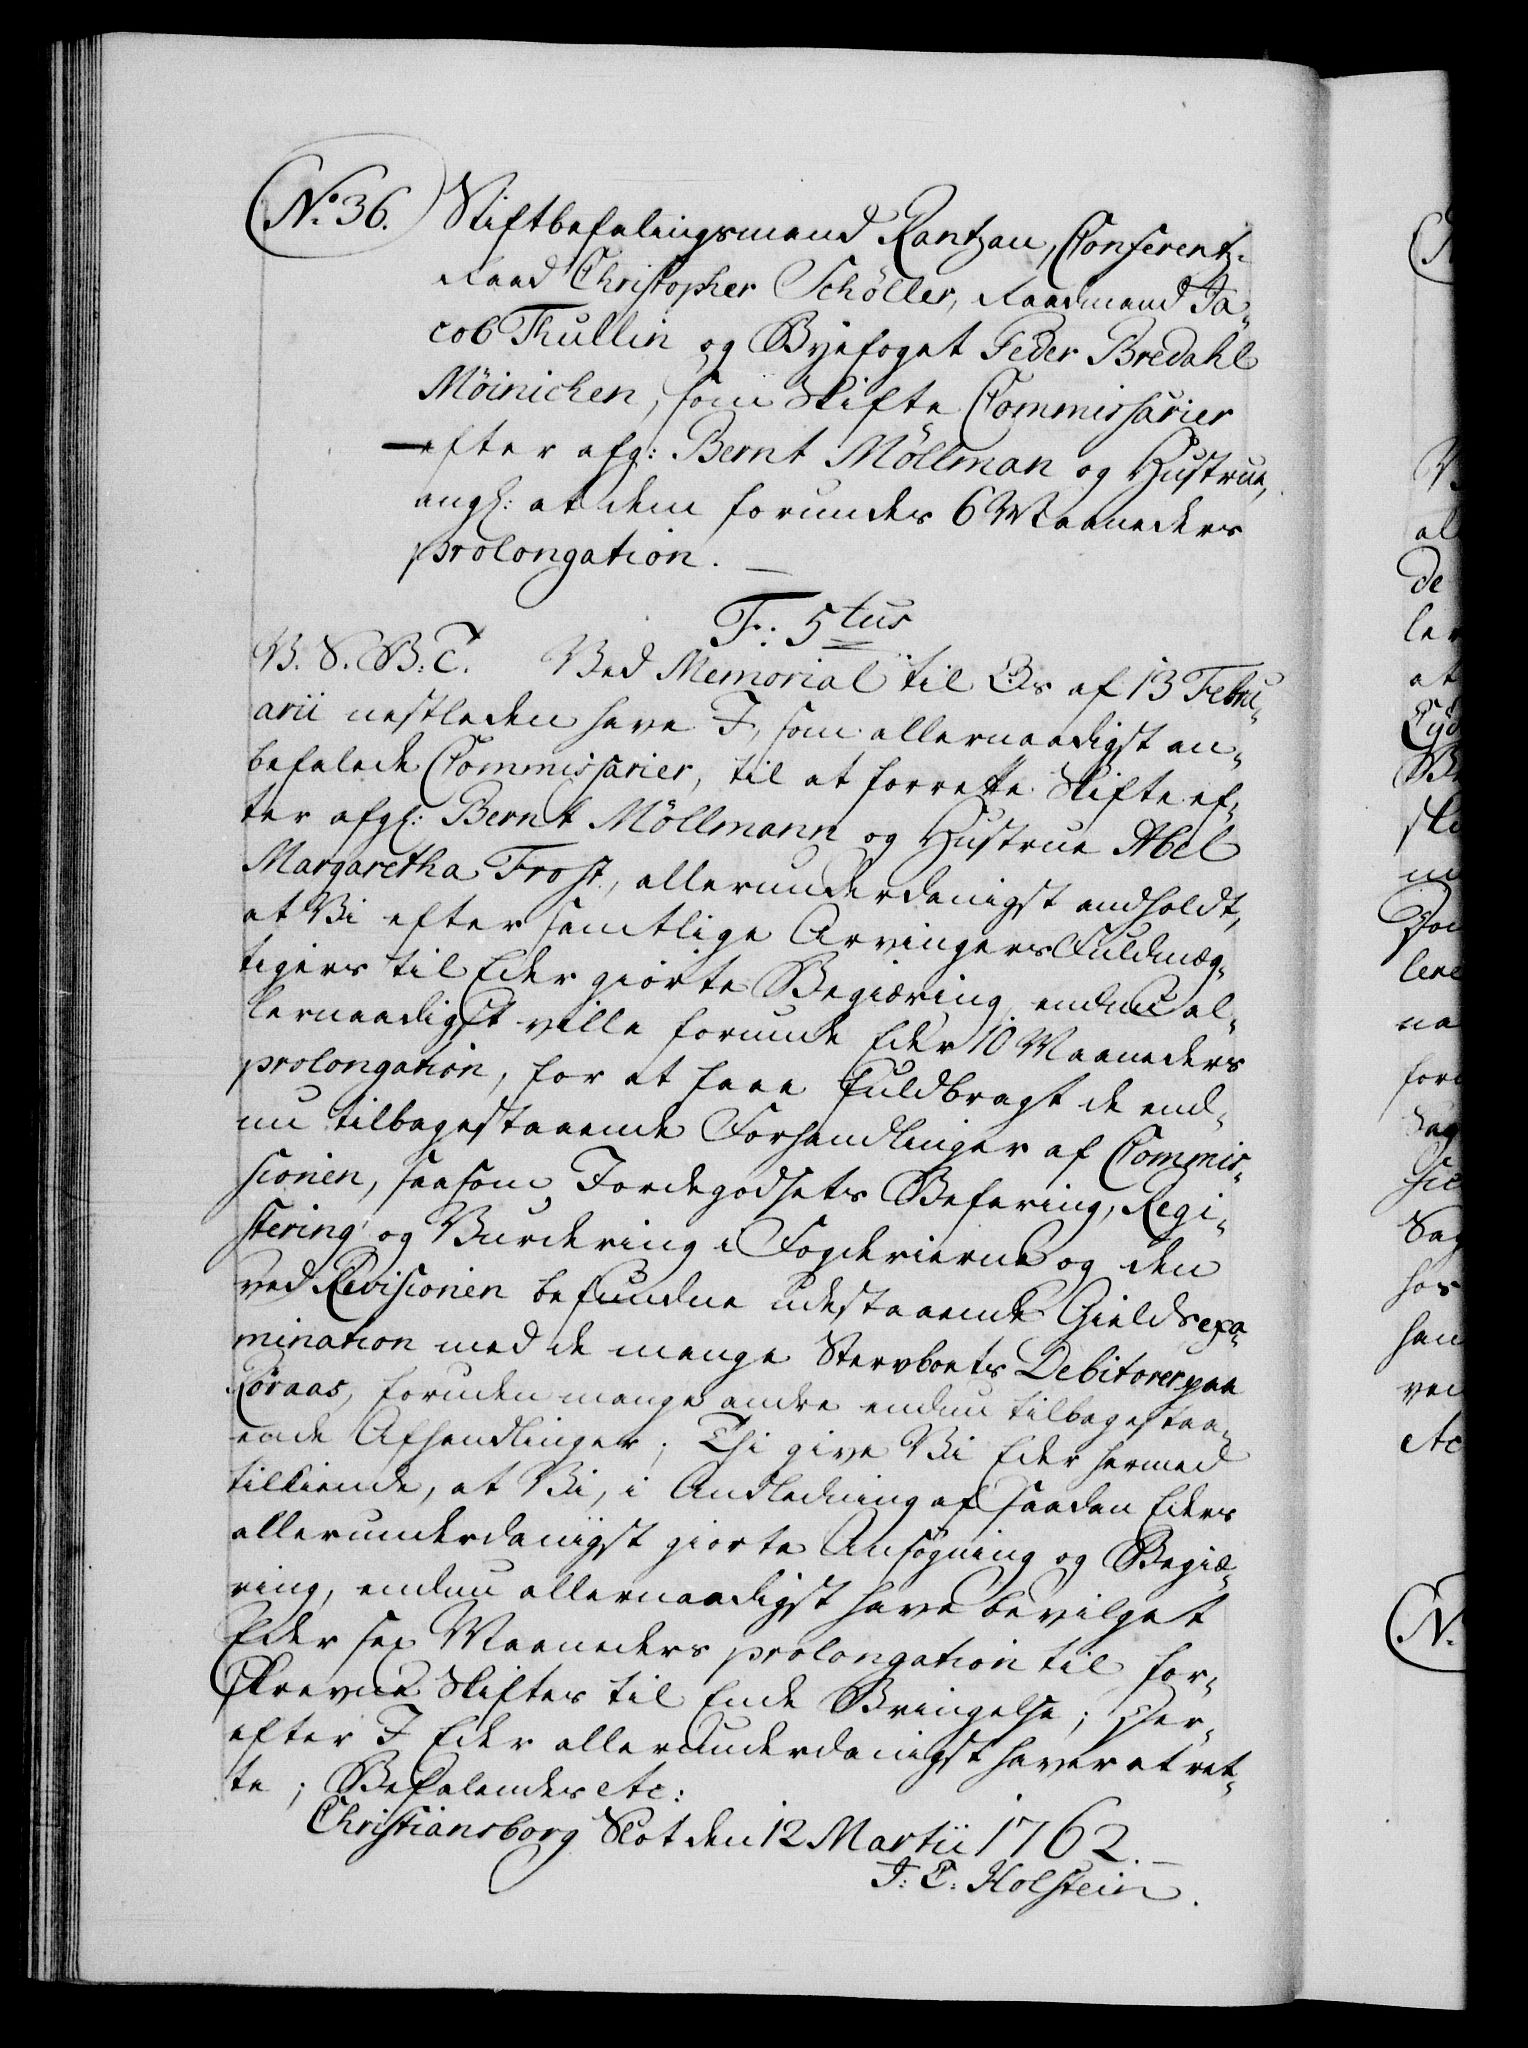 No: 36. Stiftbefalingsmand Rantzau, Conferentz-
Raad Christopher Schöller, Raadmand Ja-
cob Thullin og Byefoget Peder Bredahl
Möinichen, som Skifte Commissarier
efter afg: Bernt Möllman og Hustrue,
angl: at dem forundes 6 Maaneders
prolongation. —
F: 5tus
V. S. B: T. Ved Memorial til Os af 13 Febru-
arii nestleden have I, som allernaadigst an-
befalede Commissarier, til at forrette Skifte ef-
ter afgl: Bernt Möllmann og Hustrue Abel
Margaretha Frost, allerunderdanigst andholdt,
at Vi efter samtlige Arvingers Fuldmæg-
tigers til Eder giorte Begiæring endnu al-
lernaadigst ville forunde Eder 10 Maaneders
prolongation, for at faae fuldbragt de end-
nu tilbagestaaende Forhandlinger af Commis-
sionen, saasom Jordegodsets Befaring, Regi-
stering og Vurdering i Fogderierne og den
ved Revisionen befundne udestaaende Gields exa-
mination med de mange Stervboets Debitorer paa
Röraas, foruden mange andre endnu tilbagestaa-
ende Afhandlinger; Thi give Vi Eder hermed
tilkiende, at Vi, i Andledning af saadan Eders
allerunderdanigst giorte Ansögning og Begiæ-
ring, endnu allernaadigst have bevilget
Eder sex Maaneders prolongation til for-
skrevne Skiftes til Ende Bringelse; Der-
efter I Eder allerunderdanigst haver at ret-
te; Befalendes etc:
Christiansborg Slot den 12 Martii 1762. —
J: L: Holstein.